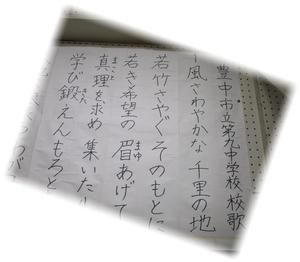 豊中市立第九中学校 校歌
風さわやかな 千里の地
若竹さやぐ そのもとに
若き希望の 眉あげて
まゆ
真理を求め 集いた
まこと
学び鍛えん もろと
きた